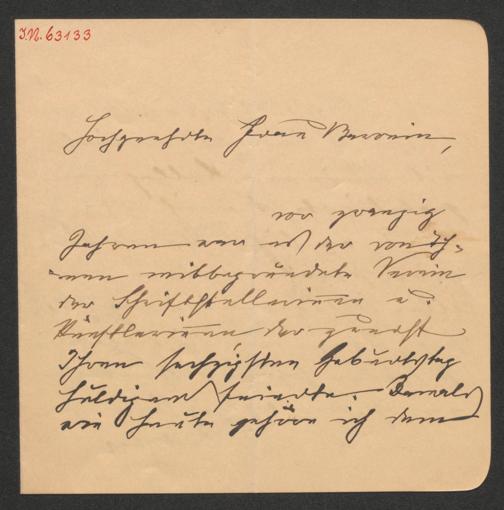 I.N. 63133
Hochgeehrte Frau Baronin,
vor zwanzig
Jahren war es der von Ih-
nen mitbegründete Verein
der Schriftstellerinnen u.
Künstlerinnen der zuerst
Ihren sechzigsten Geburtstag
huldigend feierte. Damals
wie heute gehöre ich dem